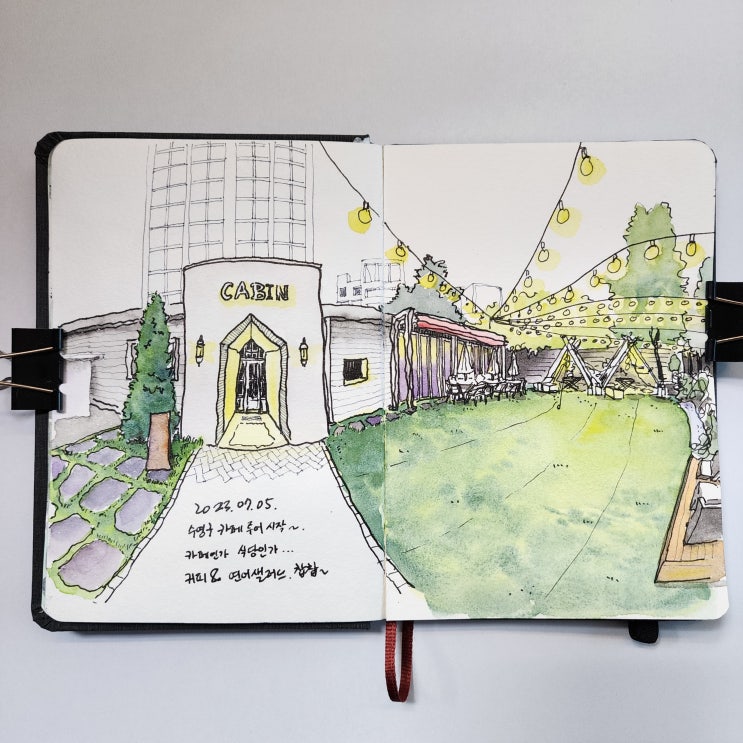 CABIN
2023.07.05.
수영구 카페 투어 시작~.
카페인가 식당인가...
커피 & 연어샐러드. 찹찹~